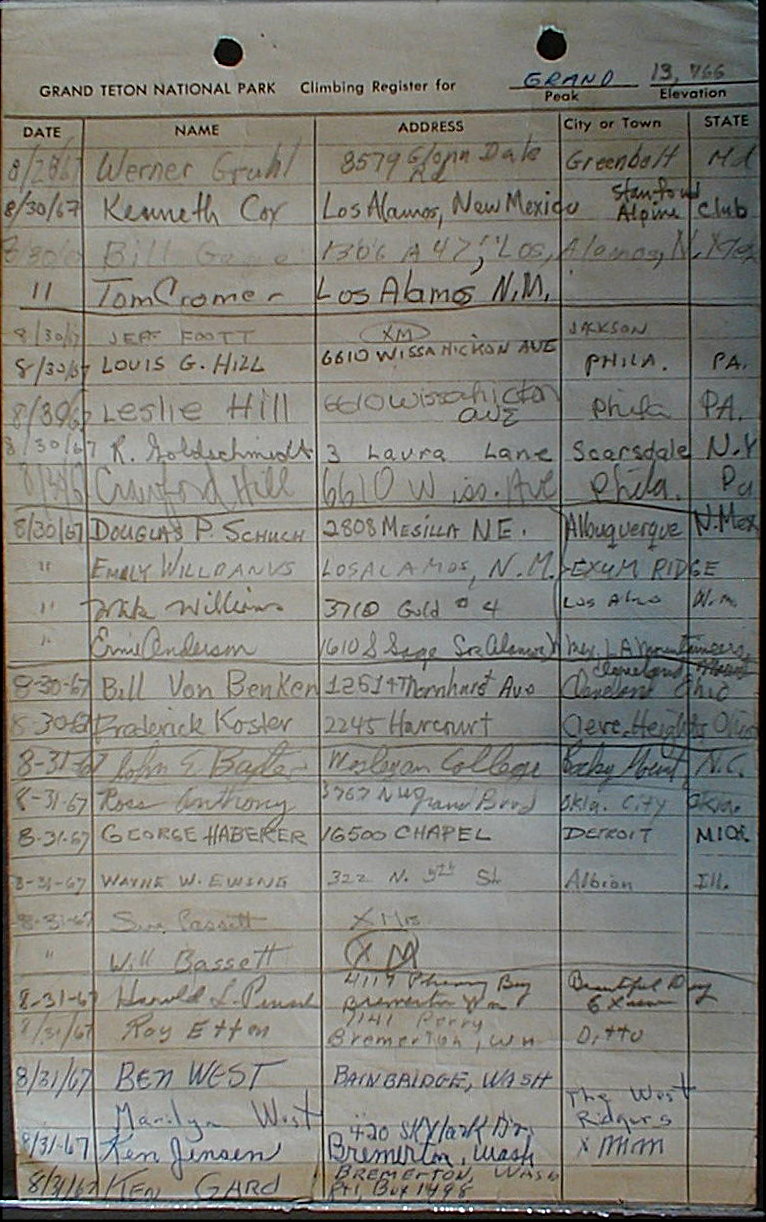 GRAND TETON NATIONAL PARK Climbing Register for GRAND 13,766
Peak Elevation
DATE NAME ADDRESS City or Town STATE
8/28/67 Werner Gruhl 8579 Glenn Dale Rd Greenbelt Md
8/30/67 Kenneth Cox Los Alamos, New Mexico Stanford Alpine Club
8/30/67 Bill 1306 A 47, Los Alamos, N. Mex
11 Tom Cromer Los Alamos N.M.
8/30/67 JEFF FOOTT XM JACKSON
8/30/67 LOUIS G. HILL 6610 WISSAHICKON AVE PHILA. PA.
8/30/67 Leslie Hill 6610 Wissahickon AVE Phila PA.
8/30/67 R. Goldschmidt 3 Laura Lane Scarsdale N.Y
8/30/67 Crawford Hill 6610 Wiss. Ave Phila. Pa
8/30/67 DOUGLAS P. SCHUCH 2808 MESILLA NE. Albuquerque N.Mex
" EMILY WILLBANKS LOS ALAMOS, N.M. EXUM RIDGE
" Mike Williams 3710 Gold # 4 Los Alamos N.M.
" Ernie Anderson 1610 Los Alamos N Mex. LA Mountaineers
8-30-67 Bill Von Benken 12514 Thornhurst Ave Cleveland Ohio
8-30-67 Frederick Koster 2245 Harcourt Cleve. Heights Ohio
8-31-67 John Wesleyan College Rocky Mount, N.C.
8-31-67 Ross Anthony 3767 NW Grand Blvd Okla. City Okla.
8-31-67 GEORGE HABERER 16500 CHAPEL DETROIT MICH.
8-31-67 WAYNE W. EWING 322 N. 5th St. Albion Ill.
8-31-67 Bassett
" Will Bassett XM
8-31-67 Harold L. 4117 Bremerton Wn Beautiful Day
8/31/67 Roy Etten 1141 Perry Bremerton, Wn Ditto
8/31/67 BEN WEST BAINBRIDGE, WASH The West Ridgers
Marilyn West
8/31-67 Ken Jensen 420 Skylark Dr. Bremerton, Wash X MM
8/31/67 KEN GARD BREMERTON, WASH Rt 1, Box 1498